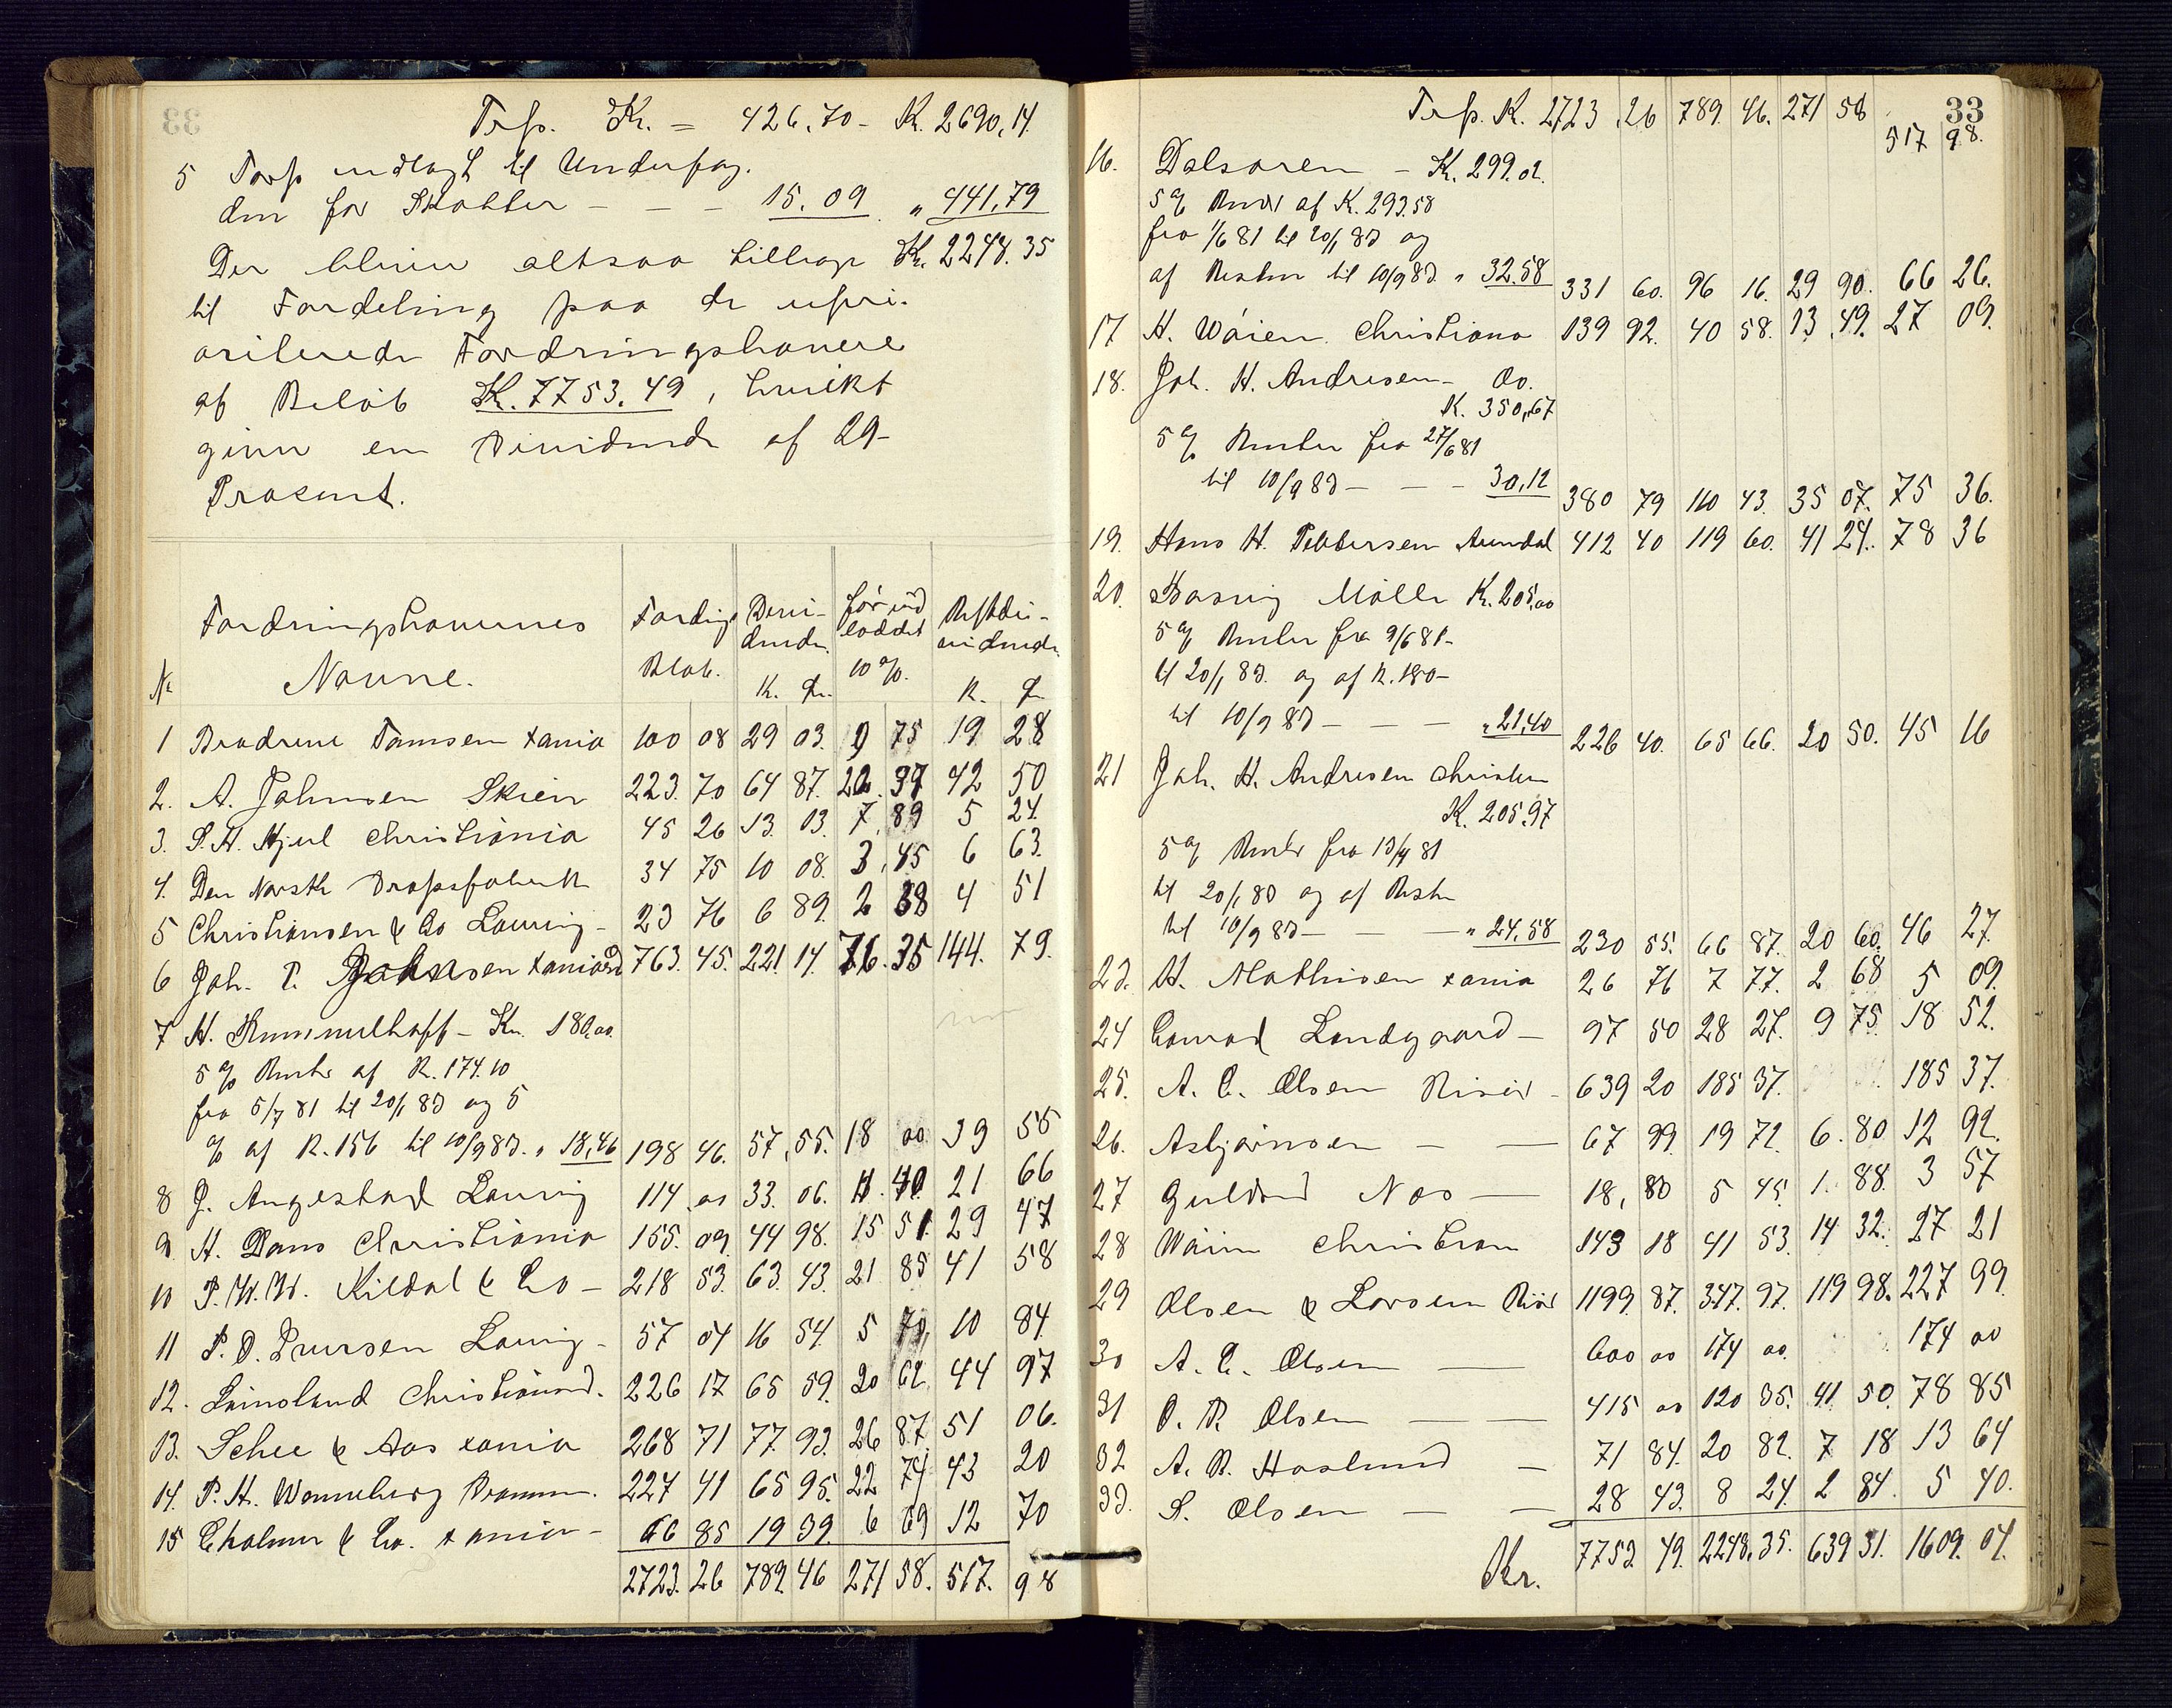 Trsp. Kr. = 426,70 - K. 2690,14.
5 Torp udlagt til Underfog.
den for Skatter - - - 15.09 „ 441,79
Der bliver altsaa tilbage Kr. 2248.35
til Fordeling paa de upri-
oriterede Fordringshavere
af Beløb Kr. 7753.49, hvilket
giver en Dividende af 29-
Procent.
No Fordringshavernes Navne. Fordrings Beløb. Divi-dende. K. Ør. før ud-loddet 10 %. Restdi-vidende. K. Ø.
1 Brødrene Tomsen Xania 100 08 29 03. 9 75 19 28
2. A. Johnsen Skien 223. 70 64 87. 22. 37 42 50
3. S. H. Hjul Christiania 45 26 13. 03. 7. 89 5 24.
4. Den Norske Dropsfabrik 34 75 10 08. 3,45 6 63.
5 Christiansen & Co Laurvig - 23 76 6 89. 2 38 4 51
6 Joh. P. Johnsen Xaniasd 763. 45. 221. 14. 76. 35 144. 79.
7 H. Rummelhoff - Kr. 180,00.
5 % Renter af K. 174.10
fra 5/7 81 til 20/1 83 og 5
% af K. 156 til 10/9 83. „ 18,46 198 46. 57,55. 18 00. 39 55
8 J. Angestad Laurvig 114 00 33. 06. 11. 40. 21 66
9 H. Dans Christiania 155. 09. 44 98. 15 51. 29 47
10 P. W. W. Kildal & Co - 218 53. 63. 43. 21 85 41 58
11 P. O. Iversen Laurvig - 57 04 16 54. 5 70, 10 84
12. Leinsland Christiansd. 226 17 65 59. 20 62 44 97
13. Schee & Aas Xania 268 71 77. 93. 26 87. 51 06.
14. P. H. Wanneberg Drammen. 227 41 65 95. 22 74 43 20
15 Chalmer & Co. Xania - 66 85 19 39. 6 69 12 70
2723. 26 789. 46 271 58. 517. 98
33
Trsp. K. 2723 26 789. 46. 271 58 517 98.
16. Dalsaren - K. 299.02.
5 % Renter af K. 293.58
fra 1/6 81 til 20/1 83 og
af Resten til 10/9 83 „ 32.58 331 60. 96 16. 29 90. 66 26.
17 H. Wåien Christiana 139 92. 40 58. 13. 49. 27 09.
18. Joh. H. Andresen - do.
K. 350,67
5 % Renter fra 27/6 81
til 10/9 83 - - - 30,12 380 79 110 43. 35 07. 75 36.
19. Hans H. Pettersen Arendal 412 40 119 60. 41 24. 78 36
20. Møller K. 205,00
5 % Renter fra 9/6 81 -
til 20/1 83. og af K. 180 -
til 10/9 83 - - - „ 21,40 226 40. 65 66. 20 50. 45 16
21 Joh. H. Andresen Christia
K. 205.97
5 % Renter fra 13/4 81
til 20/1 83 og af Resten
til 10/9 83 - - - „ 24.58 230 55. 66 87. 20 60. 46 27.
23. H. Mathisen Xania 26 76 7 77. 2 68 5 09.
24 Conrad Landgaard - 97 50 28 27. 9 75. 18 52.
25. A. C. Olsen Risør - 639 20 185 37. 185 37.
26. Asbjørnsen - - 67 99 19 72. 6. 80 12 92.
27 Gulbrand Næs - 18, 80 5 45. 1. 88. 3 57
28 Wåien Christiania 143 18 41 53. 14 32. 27 21
29 Olsen & Larsen Risør 1199. 87. 347. 97. 119 98. 227 99.
30 A. C. Olsen - 600 00 174 00. 174 00
31 O. R. Olsen - - 415 00 120 35. 41 50. 78 85
32 A. B. Haslund - 71 84. 20 82. 7 18 13 64
33. S. Olsen - - 28 43. 8 24. 2 84. 5 40.
Kr. 7753 49. 2248. 35. 639 31. 1609. 04.